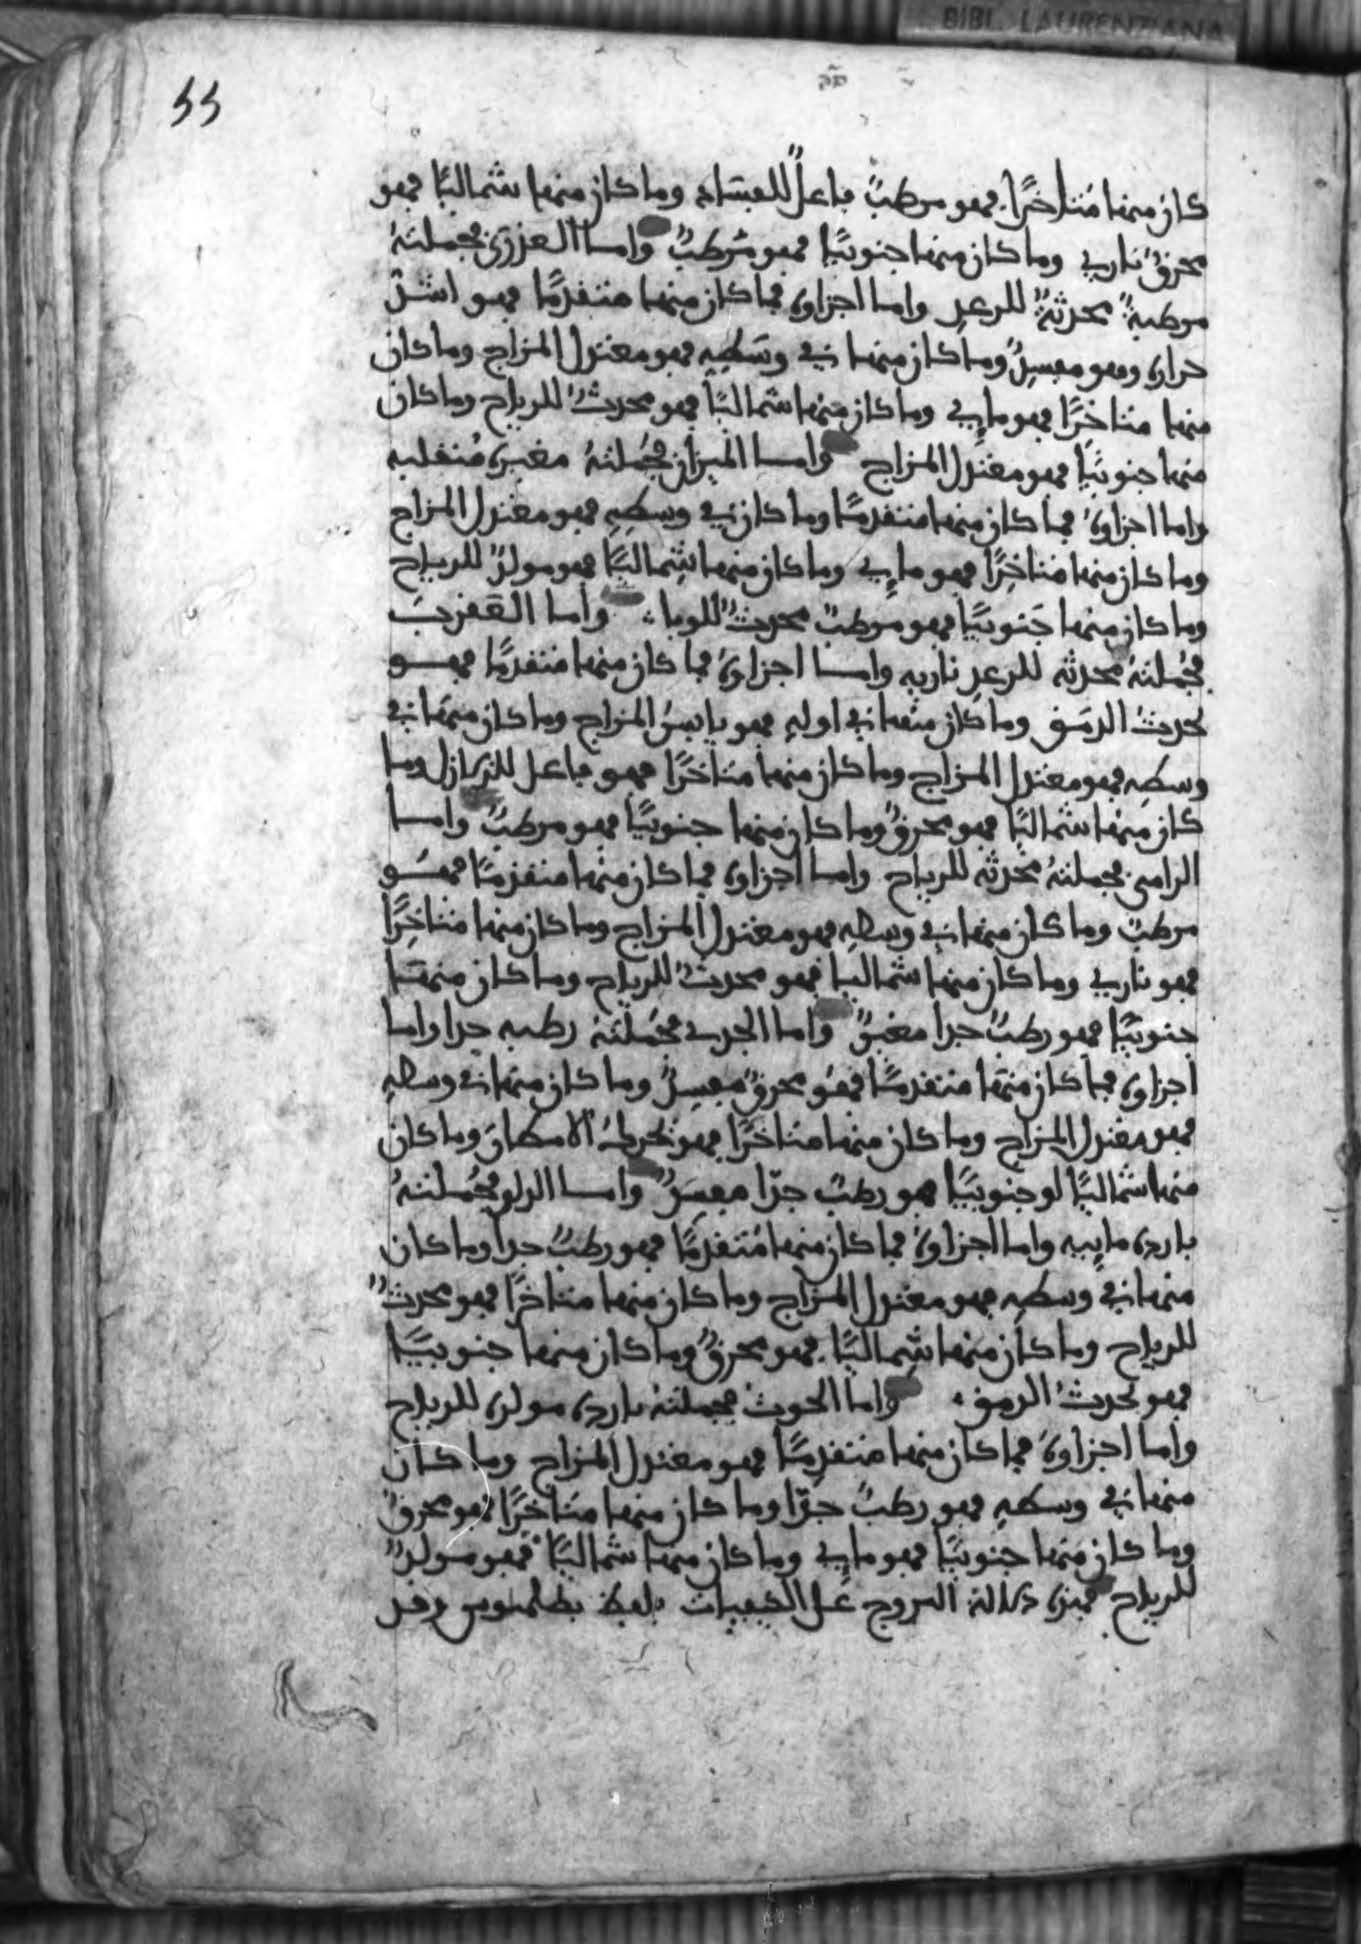 BIBL. LAURENZIANA
55
كان منها متاخرًا فهو مرطبٌ فاعلٌ للفساد وما كان منها شماليًا فهو
محرقٌ ناري وما كان منها جنوبيًا فهو مرطبٌ واما العذرى فجملتهُ
مرطبةٌ محدثةٌ للرعد واما اجزاوه فما كان منها متقدمًا فهو اشدّ
حراره وهو مفسدٌ وما كان منها في وسَطِهِ فهو معتدل المزاج وما كان
منها متاخرًا فهو مايي وما كان منها شماليًا فهو محدثٌ للرياح وما كان
منها جنوبيًا فهو معتدل المزاج واما الميزان فجُملتهُ مغيره مُنقلبه
واما اجزاوهُ فما كان منها متقدمًا وما كان في وسطِهِ فهو معتدل المزاج
وما كان منها متاخِرًا فهو مايي وما كان منها شِماليًا فهو مولدٌ للرياح
وما كان منها جَنوبيًا فهو مرطبٌ محدثٌ للوباء واما العقرب
فجُملتهُ محدثه للرعدِ ناريه واما اجزاوهُ فما كان منها متقدمًا فهو
يحدث الدمَق وما كان منها في اولهِ فهو يابسُ المزاج وما كان منها في
وسطِهِ فهو معتدل المزاج وما كان منها متاخرًا فهو فاعل للزلازل وما
كان منها شماليًا فهو محرقٌ وما كان منها جنوبيًا فهو مرطبٌ واما
الرامى فجملتهُ محدثه للرياح واما اجزاوه فما كان منها متقدمًا فهو
مرطبٌ وما كان منها في وسطِهِ فهو معتدل المزاج وما كان منها متاخِرًا
فهو ناري وما كان منها شماليا فهو محدثٌ للرياح وما كان منها
جنوبيًا فهو رطبٌ جدا مغيرٌ واما الجدي فجُملتهُ رطبه جدا واما
اجزاوه فما كان منها متقدمًا فهو محرقٌ مفسدٌ وما كان منها في وسطهِ
فهو معتدل المزاج وما كان منها متاخرًا فهو يحرك الامطارَ وما كان
منها شماليًا او جنوبيًا فهو رطبٌ جدًا مفسدٌ واما الدلو فجُملتهُ
بارده ماييه واما اجزاوهُ فما كان منها مُتقدمًا فهو رطبٌ جدا وما كان
منها في وسطِهِ فهو معتدل المزاج وما كان منها متاخرًا فهو محدثٌ
للرياح وما كان منها شِماليًا فهو محرقٌ وما كان منها جنوبيًا
فهو يحدثُ الدمق واما الحوت فجملتهُ بارده مولده للرياح
واما اجزاوهُ فما كان منها متقدمًا فهو معتدل المزاج وما كان
منها في وسطهِ فهو رطبٌ جدًا وما كان منها متاخرًا فهو محرقٌ
وما كان منها جنوبيًا فهو مايي وما كان منها شماليًا فهو مولدٌ
للرياح فهذه دلالة البروج على الكيفيات بلفظ بطلميوس وقد